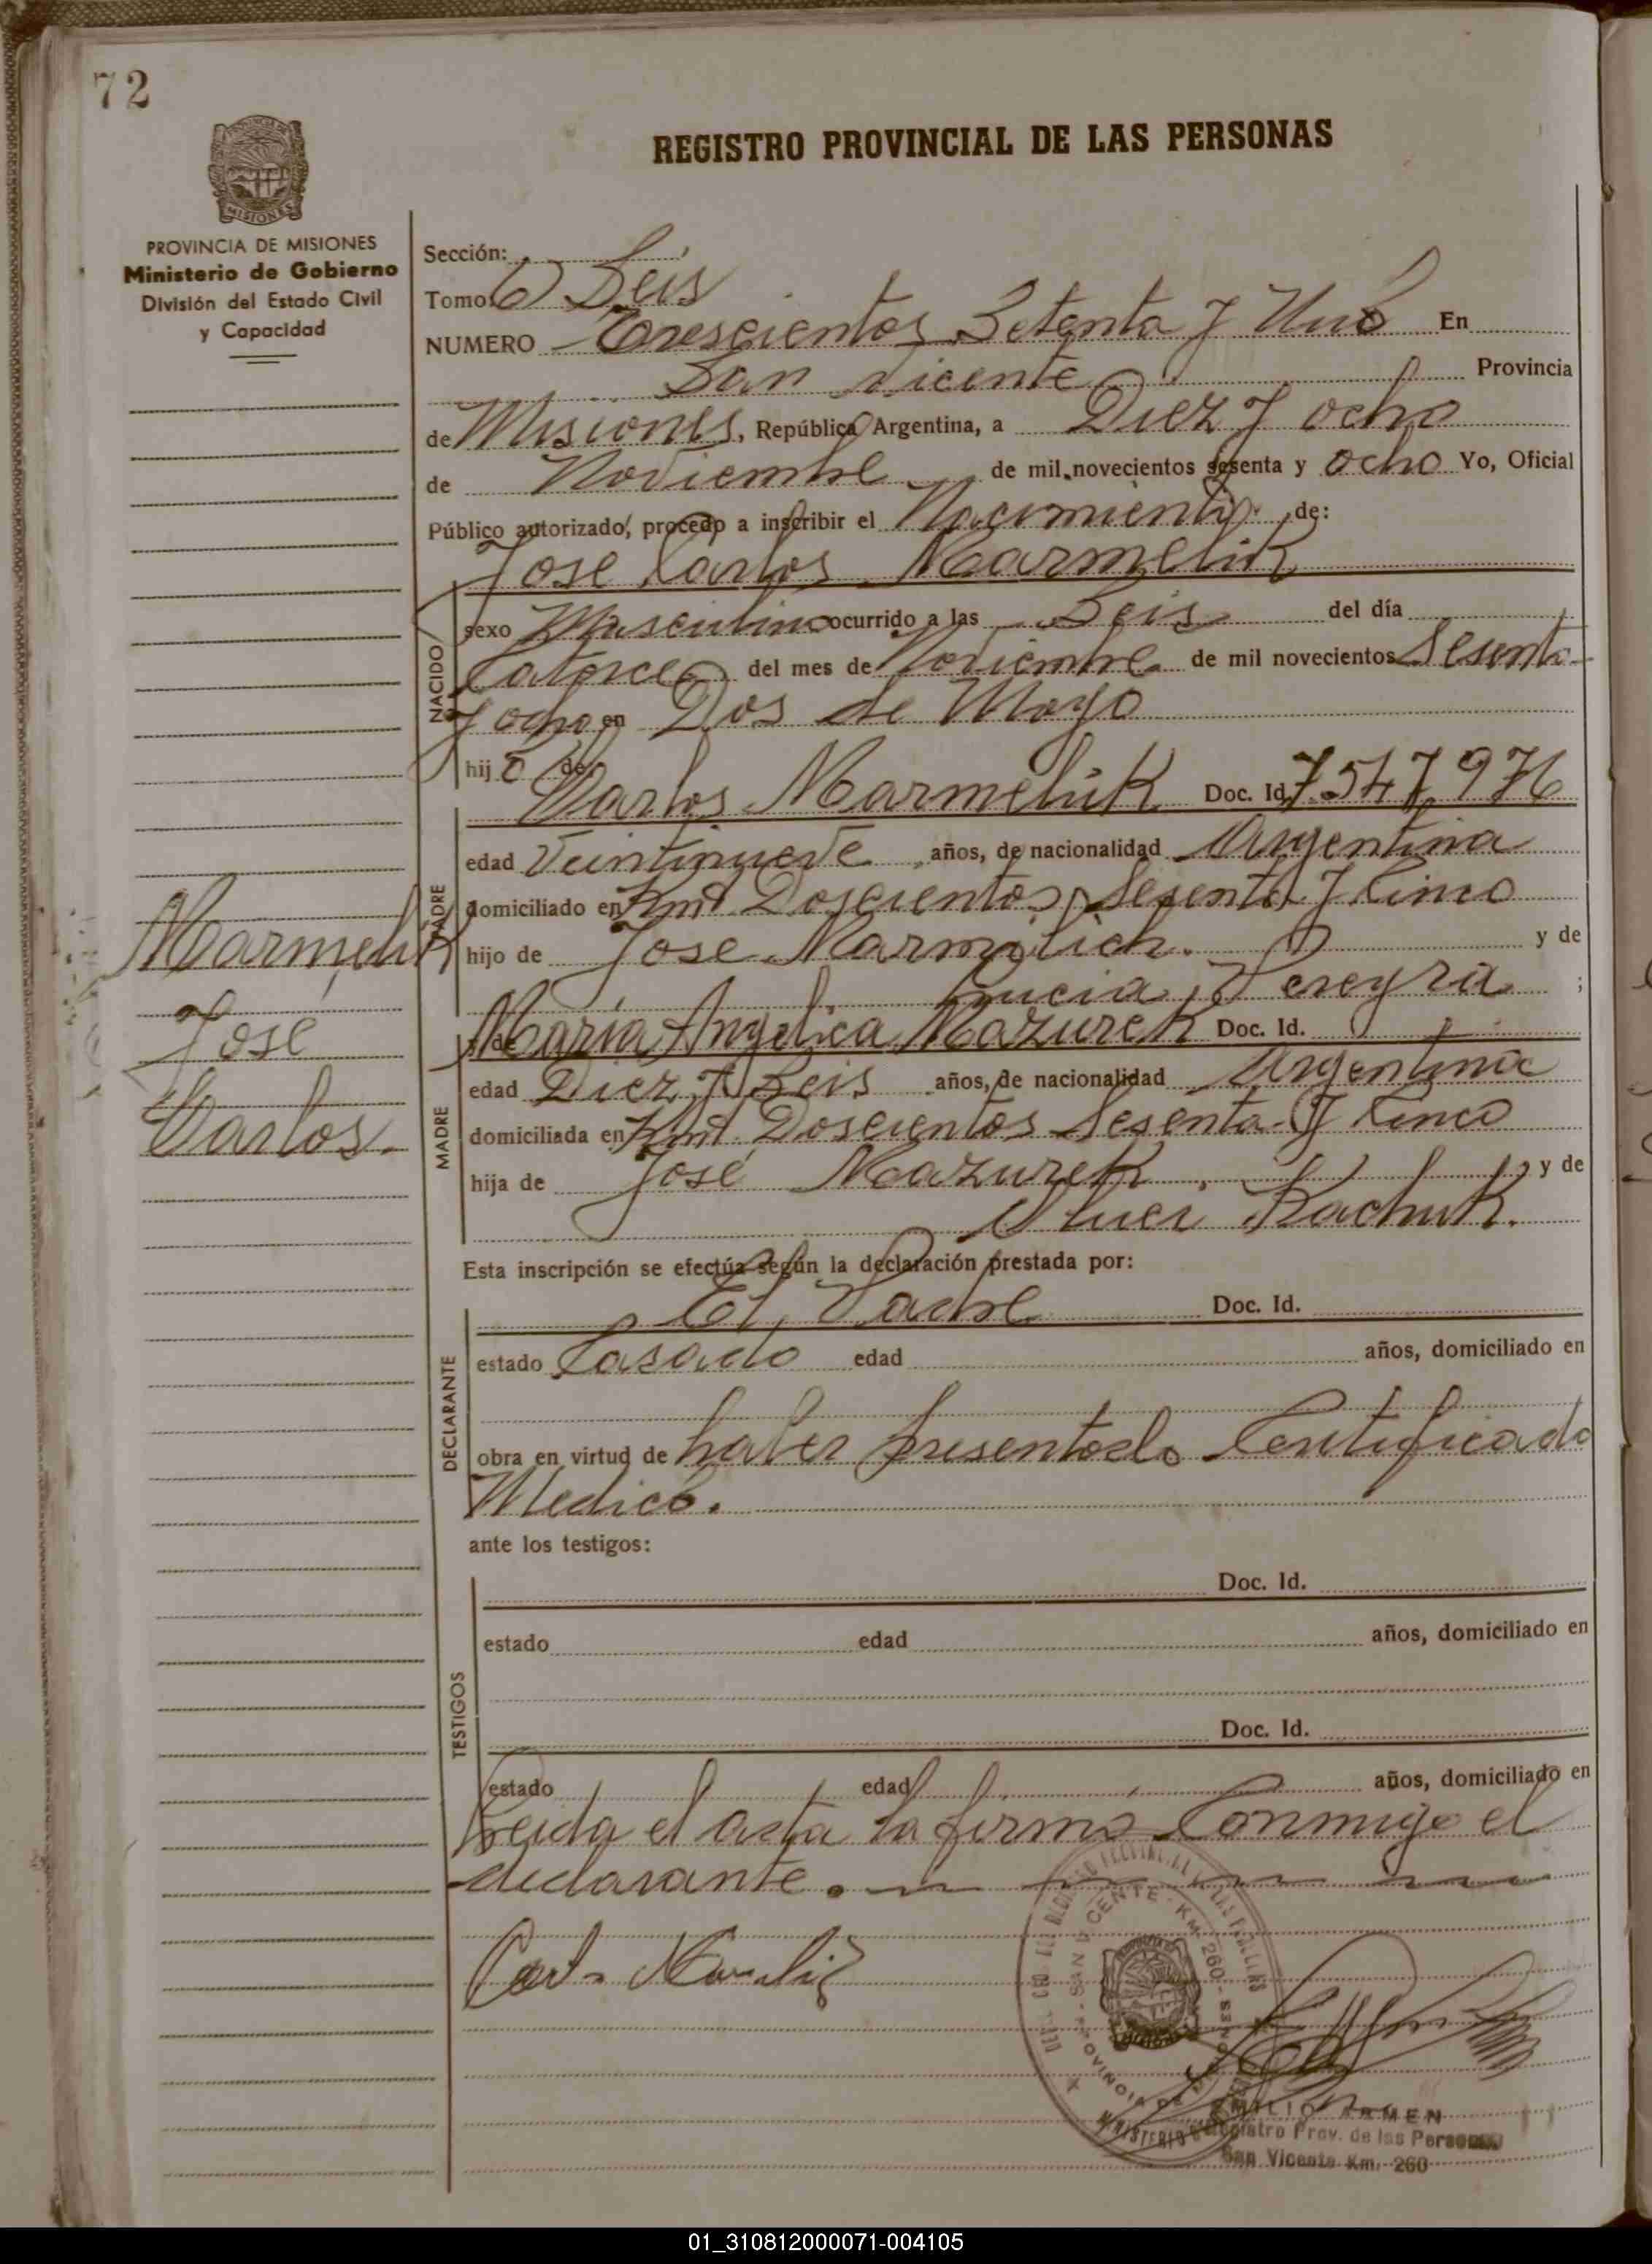 72
REGISTRO PROVINCIAL DE LAS PERSONAS
MISIONES
PROVINCIA DE MISIONES
Ministerio de Gobierno
División del Estado Civil
y Capacidad
Sección:
Tomo: 6 Seis
NUMERO Trescientos Setenta y Uno En
San Vicente Provincia
de Misiones, República Argentina, a Diez y ocho
de Noviembre de mil novecientos sesenta y ocho Yo, Oficial
Público autorizado, procedo a inscribir el Nacimiento de:
Jose Carlos Marmelik
NACIDO
sexo Masculino ocurrido a las Seis del día
Catorce del mes de Noviembre de mil novecientos Sesenta
y ocho en Dos de Mayo
hijo de
Carlos Marmelik Doc. Id. 7.547.976
PADRE
edad Veintinueve años, de nacionalidad Argentina
domiciliado en Kmt Doscientos Sesenta y Cinco
hijo de Jose Marmilich. y de
Lucia Pereyra ;
y de Maria Angelica Mazurek Doc. Id.
MADRE
edad Diez y Seis años, de nacionalidad Argentina
domiciliada en Kmt. Doscientos Sesenta y Cinco
hija de José Mazurek y de
Kachuk.
Marmelik
José
Carlos.
Esta inscripción se efectúa según la declaración prestada por:
El Padre Doc. Id.
DECLARANTE
estado Casado edad años, domiciliado en
obra en virtud de haber presentado Certificado
Medico.
ante los testigos:
Doc. Id.
TESTIGOS
estado edad años, domiciliado en
Doc. Id.
estado edad años, domiciliado en
Leida el acta la firma Conmigo el
declarante.
SAN VICENTE - KM. 260 - MISIONES
PROVINCIA DE
MINISTERIO
EMILIO ARMEN
Registro Prov. de las Personas
San Vicente Km. 260
01_310812000071-004105